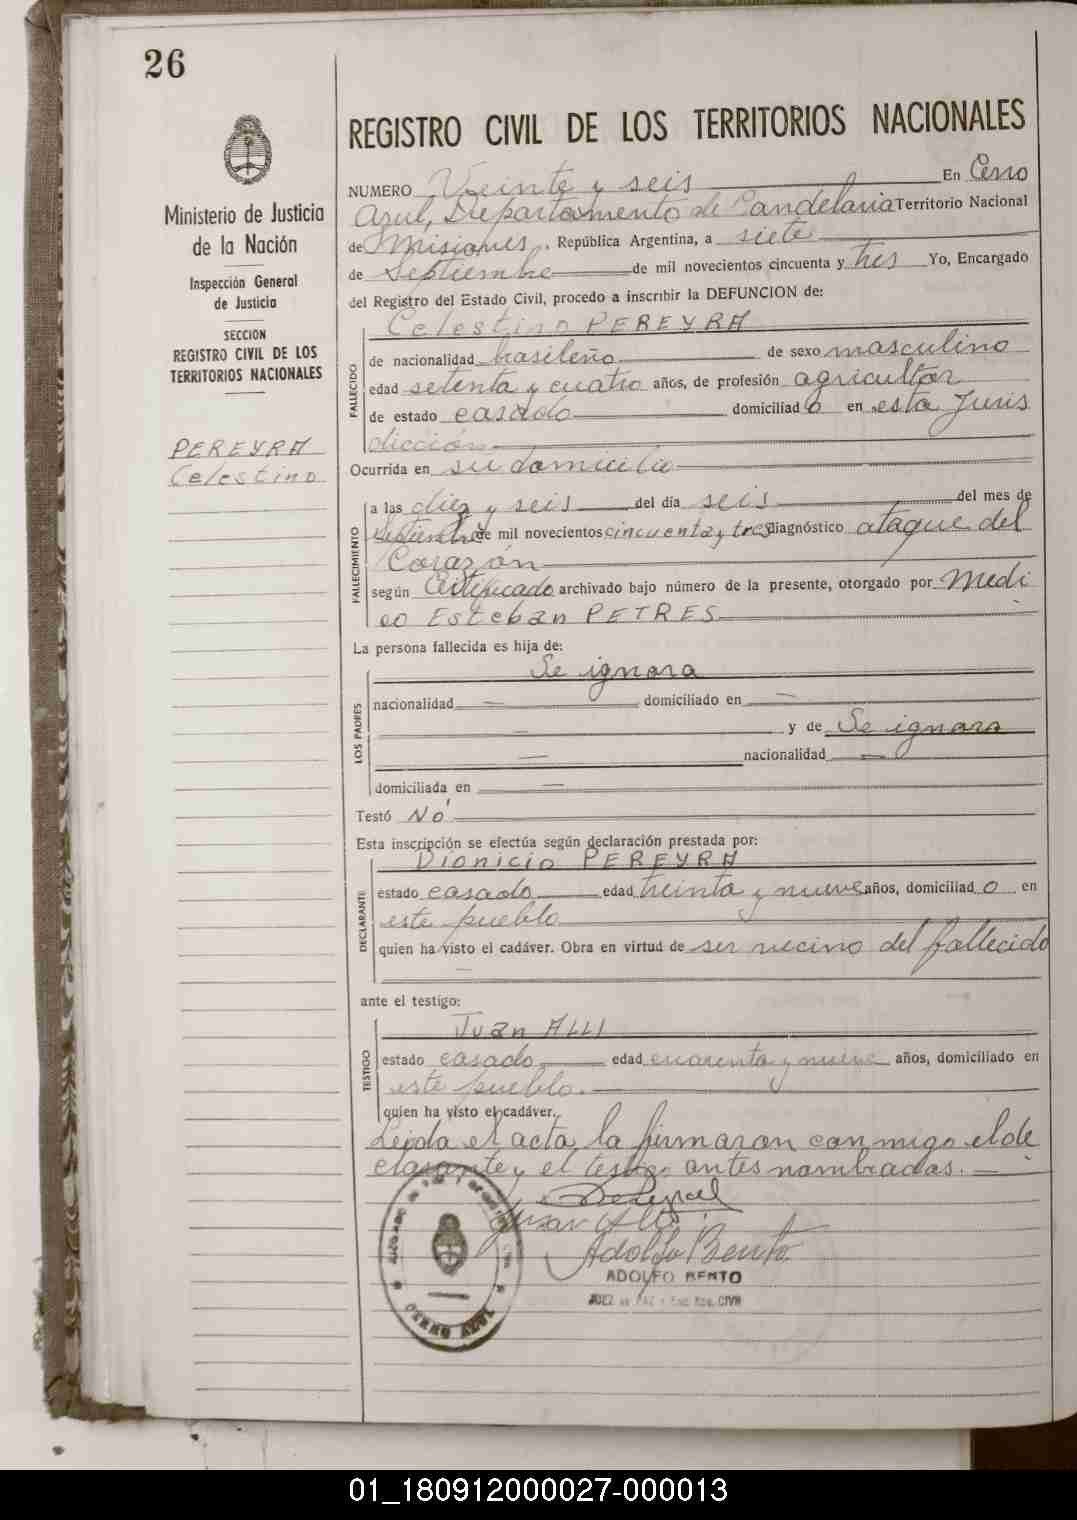 26
REGISTRO CIVIL DE LOS TERRITORIOS NACIONALES
Ministerio de Justicia
de la Nación
Inspección General
de Justicia
SECCION
REGISTRO CIVIL DE LOS
TERRITORIOS NACIONALES
PEREYRA
Celestino
NUMERO Veinte y seis En Cerro
Azul, Departamento de Candelaria Territorio Nacional
de Misiones, República Argentina, a siete
de Septiembre de mil novecientos cincuenta y tres Yo, Encargado
del Registro del Estado Civil, procedo a inscribir la DEFUNCION de:
Celestino PEREYRA
FALLECIDO
de nacionalidad brasileño de sexo masculino
edad setenta y cuatro años, de profesión agricultor
de estado casado domiciliado en esta Juris
dicción
Ocurrida en su domicilio
FALLECIMIENTO
a las diez y seis del día seis del mes de
Septiembre de mil novecientos cincuenta y tres diagnóstico ataque del
Corazón
según Certificado archivado bajo número de la presente, otorgado por Medi
co Esteban PETRES
La persona fallecida es hija de:
Se ignora
LOS PADRES
nacionalidad — domiciliado en —
— y de Se ignora
— nacionalidad —
domiciliada en —
Testó No
Esta inscripción se efectúa según declaración prestada por:
Dionicio PEREYRA
DECLARANTE
estado casado edad treinta y nueve años, domiciliado en
este pueblo
quien ha visto el cadáver. Obra en virtud de ser vecino del fallecido
ante el testigo:
Juan ALLI
TESTIGO
estado casado edad cuarenta y nueve años, domiciliado en
este pueblo.
quien ha visto el cadáver.
Leida el acta, la firmaron conmigo el de
clarante y el testigo antes nombrados. —
Juan Alli
Adolfo Bento
ADOLFO BENTO
JUEZ de PAZ y Enc. Reg. CIVIL
CERRO AZUL
01_180912000027-000013